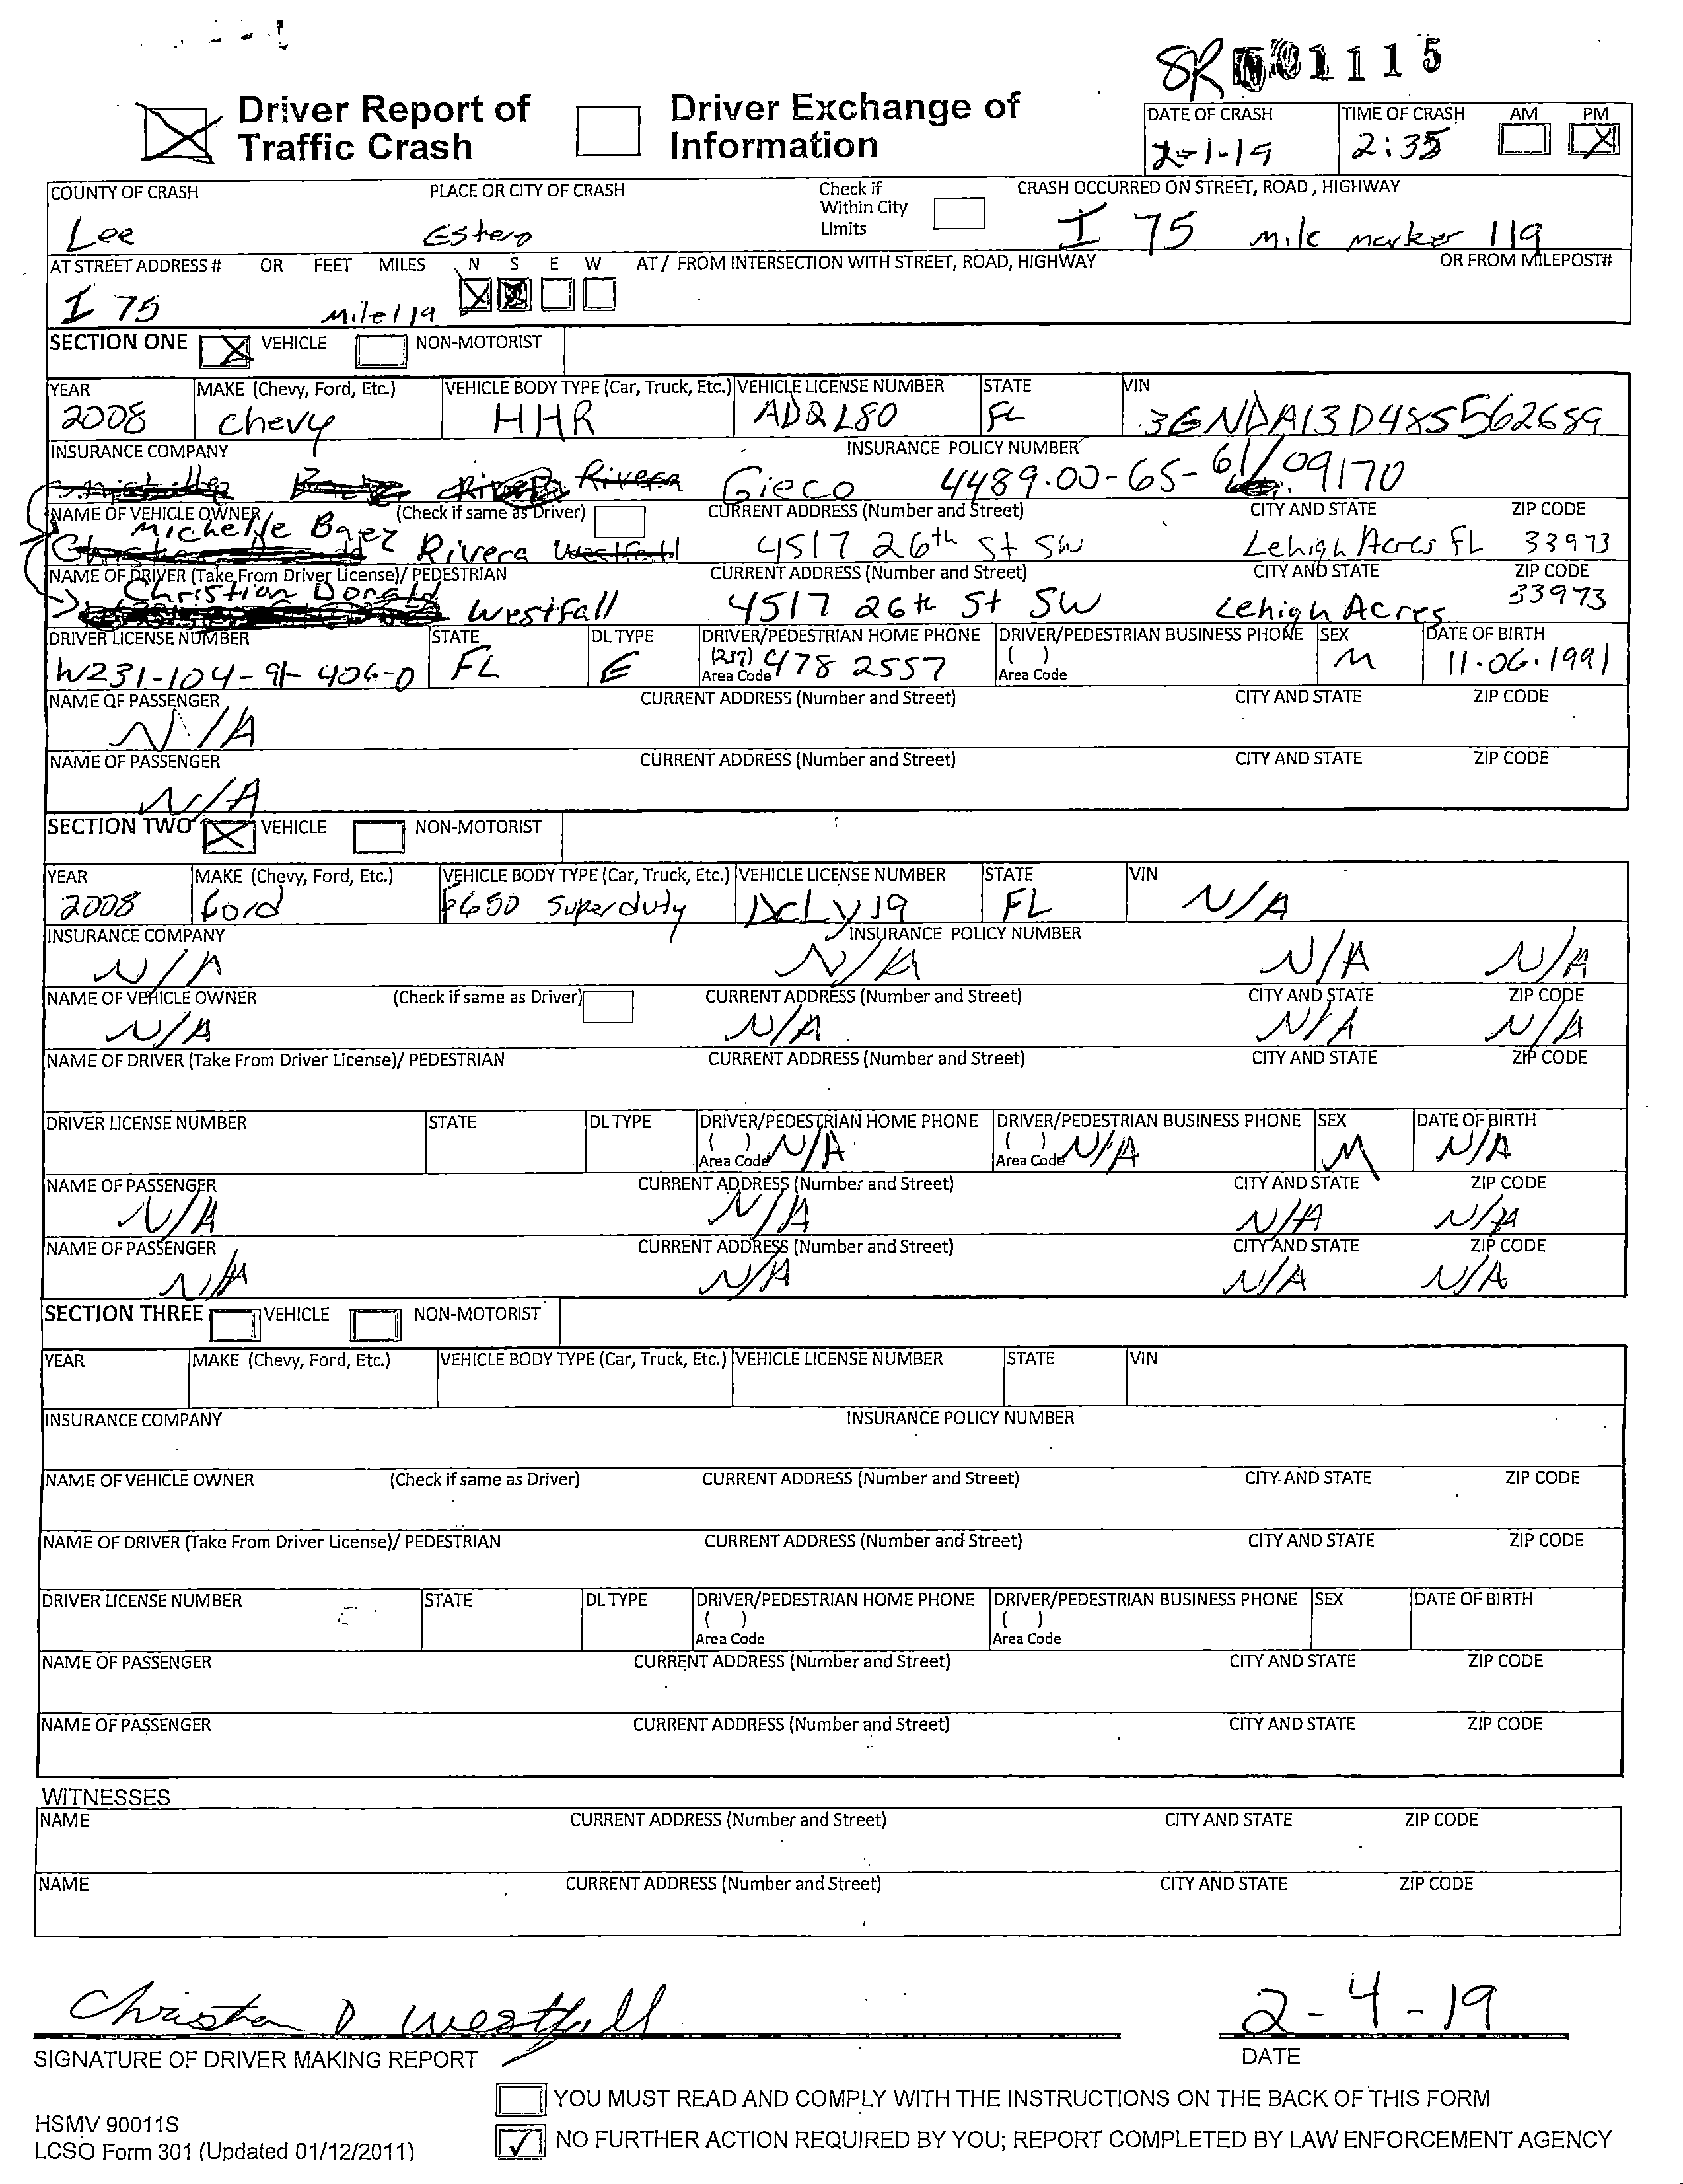 SR 001115
Driver Report of Traffic Crash
Driver Exchange of Information
DATE OF CRASH TIME OF CRASH AM PM
2-1-19 2:35 X
COUNTY OF CRASH PLACE OR CITY OF CRASH Check if Within City Limits CRASH OCCURRED ON STREET, ROAD , HIGHWAY
Lee Estero I 75 Mile marker 119
AT STREET ADDRESS # OR FEET MILES N S E W AT / FROM INTERSECTION WITH STREET, ROAD, HIGHWAY OR FROM MILEPOST#
I 75 Mile 119 X
SECTION ONE X VEHICLE NON-MOTORIST
YEAR MAKE (Chevy, Ford, Etc.) VEHICLE BODY TYPE (Car, Truck, Etc.) VEHICLE LICENSE NUMBER STATE VIN
2008 Chevy HHR ADQL80 FL 3GNDA13D48S562689
INSURANCE COMPANY INSURANCE POLICY NUMBER
Rivera Gieco 4489-00-65-61/09170
NAME OF VEHICLE OWNER (Check if same as Driver) CURRENT ADDRESS (Number and Street) CITY AND STATE ZIP CODE
Michelle Baez Rivera Westfall 4517 26th St SW Lehigh Acres FL 33973
NAME OF DRIVER (Take From Driver License)/ PEDESTRIAN CURRENT ADDRESS (Number and Street) CITY AND STATE ZIP CODE
Christian Donald Westfall 4517 26th St SW Lehigh Acres 33973
DRIVER LICENSE NUMBER STATE DL TYPE DRIVER/PEDESTRIAN HOME PHONE DRIVER/PEDESTRIAN BUSINESS PHONE SEX DATE OF BIRTH
W231-104-91-406-0 FL E 478 2557 ( ) M 11.06.1991
Area Code Area Code
NAME OF PASSENGER CURRENT ADDRESS (Number and Street) CITY AND STATE ZIP CODE
N/A
NAME OF PASSENGER CURRENT ADDRESS (Number and Street) CITY AND STATE ZIP CODE
N/A
SECTION TWO X VEHICLE NON-MOTORIST
YEAR MAKE (Chevy, Ford, Etc.) VEHICLE BODY TYPE (Car, Truck, Etc.) VEHICLE LICENSE NUMBER STATE VIN
2008 Ford F650 Superduty DCLY19 FL N/A
INSURANCE COMPANY INSURANCE POLICY NUMBER
N/A N/A N/A N/A
NAME OF VEHICLE OWNER (Check if same as Driver) CURRENT ADDRESS (Number and Street) CITY AND STATE ZIP CODE
N/A N/A N/A N/A
NAME OF DRIVER (Take From Driver License)/ PEDESTRIAN CURRENT ADDRESS (Number and Street) CITY AND STATE ZIP CODE
DRIVER LICENSE NUMBER STATE DL TYPE DRIVER/PEDESTRIAN HOME PHONE DRIVER/PEDESTRIAN BUSINESS PHONE SEX DATE OF BIRTH
( ) N/A ( ) N/A M N/A
Area Code Area Code
NAME OF PASSENGER CURRENT ADDRESS (Number and Street) CITY AND STATE ZIP CODE
N/A N/A N/A N/A
NAME OF PASSENGER CURRENT ADDRESS (Number and Street) CITY AND STATE ZIP CODE
N/A N/A N/A N/A
SECTION THREE VEHICLE NON-MOTORIST
YEAR MAKE (Chevy, Ford, Etc.) VEHICLE BODY TYPE (Car, Truck, Etc.) VEHICLE LICENSE NUMBER STATE VIN
INSURANCE COMPANY INSURANCE POLICY NUMBER
NAME OF VEHICLE OWNER (Check if same as Driver) CURRENT ADDRESS (Number and Street) CITY AND STATE ZIP CODE
NAME OF DRIVER (Take From Driver License)/ PEDESTRIAN CURRENT ADDRESS (Number and Street) CITY AND STATE ZIP CODE
DRIVER LICENSE NUMBER STATE DL TYPE DRIVER/PEDESTRIAN HOME PHONE DRIVER/PEDESTRIAN BUSINESS PHONE SEX DATE OF BIRTH
( ) ( )
Area Code Area Code
NAME OF PASSENGER CURRENT ADDRESS (Number and Street) CITY AND STATE ZIP CODE
NAME OF PASSENGER CURRENT ADDRESS (Number and Street) CITY AND STATE ZIP CODE
WITNESSES
NAME CURRENT ADDRESS (Number and Street) CITY AND STATE ZIP CODE
NAME CURRENT ADDRESS (Number and Street) CITY AND STATE ZIP CODE
Christian D Westfall 2-4-19
SIGNATURE OF DRIVER MAKING REPORT DATE
YOU MUST READ AND COMPLY WITH THE INSTRUCTIONS ON THE BACK OF THIS FORM
HSMV 90011S
NO FURTHER ACTION REQUIRED BY YOU; REPORT COMPLETED BY LAW ENFORCEMENT AGENCY
LCSO Form 301 (Updated 01/12/2011)